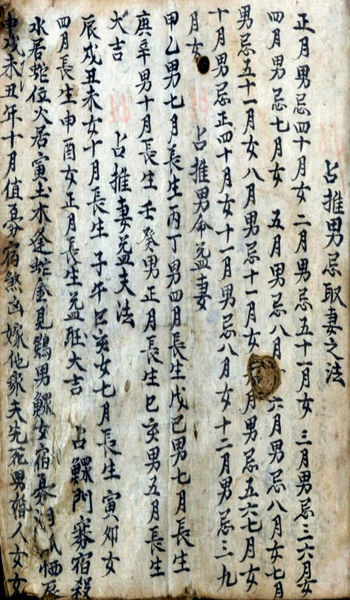 占推男忌取妻之法
正月男忌四十月女 二月男忌五十一月女 三月男忌三六月女
四月男忌七月女 五月男忌八月 六月男忌八月女七月
男忌五十一月女八月男忌十一月女 月男忌五六七月女
十月男忌正四十月女十一月男忌八月女十二月男忌三九
月女 占推男命益妻
甲乙男七月長生丙丁男四月長生戊己男七月長生
庚辛男十月長生壬癸男正月長生巳亥男五月長生
大吉 占推妻益夫法
辰戌丑未女十月長生子午巳亥女七月長生寅卯女
四月長生申酉女正月長生益旺大吉 占鰥門寡宿殺
水居蛇位火居寅土木逢蛇金見鷄男鰥女宿
戌未丑年十月值寡宿煞凶嫁他家夫先死男婚人女女